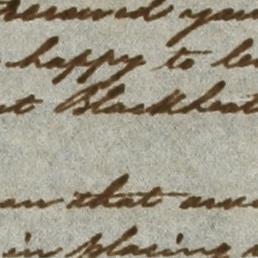 received you
happy to le
at Blackheat
an that arra
in placing